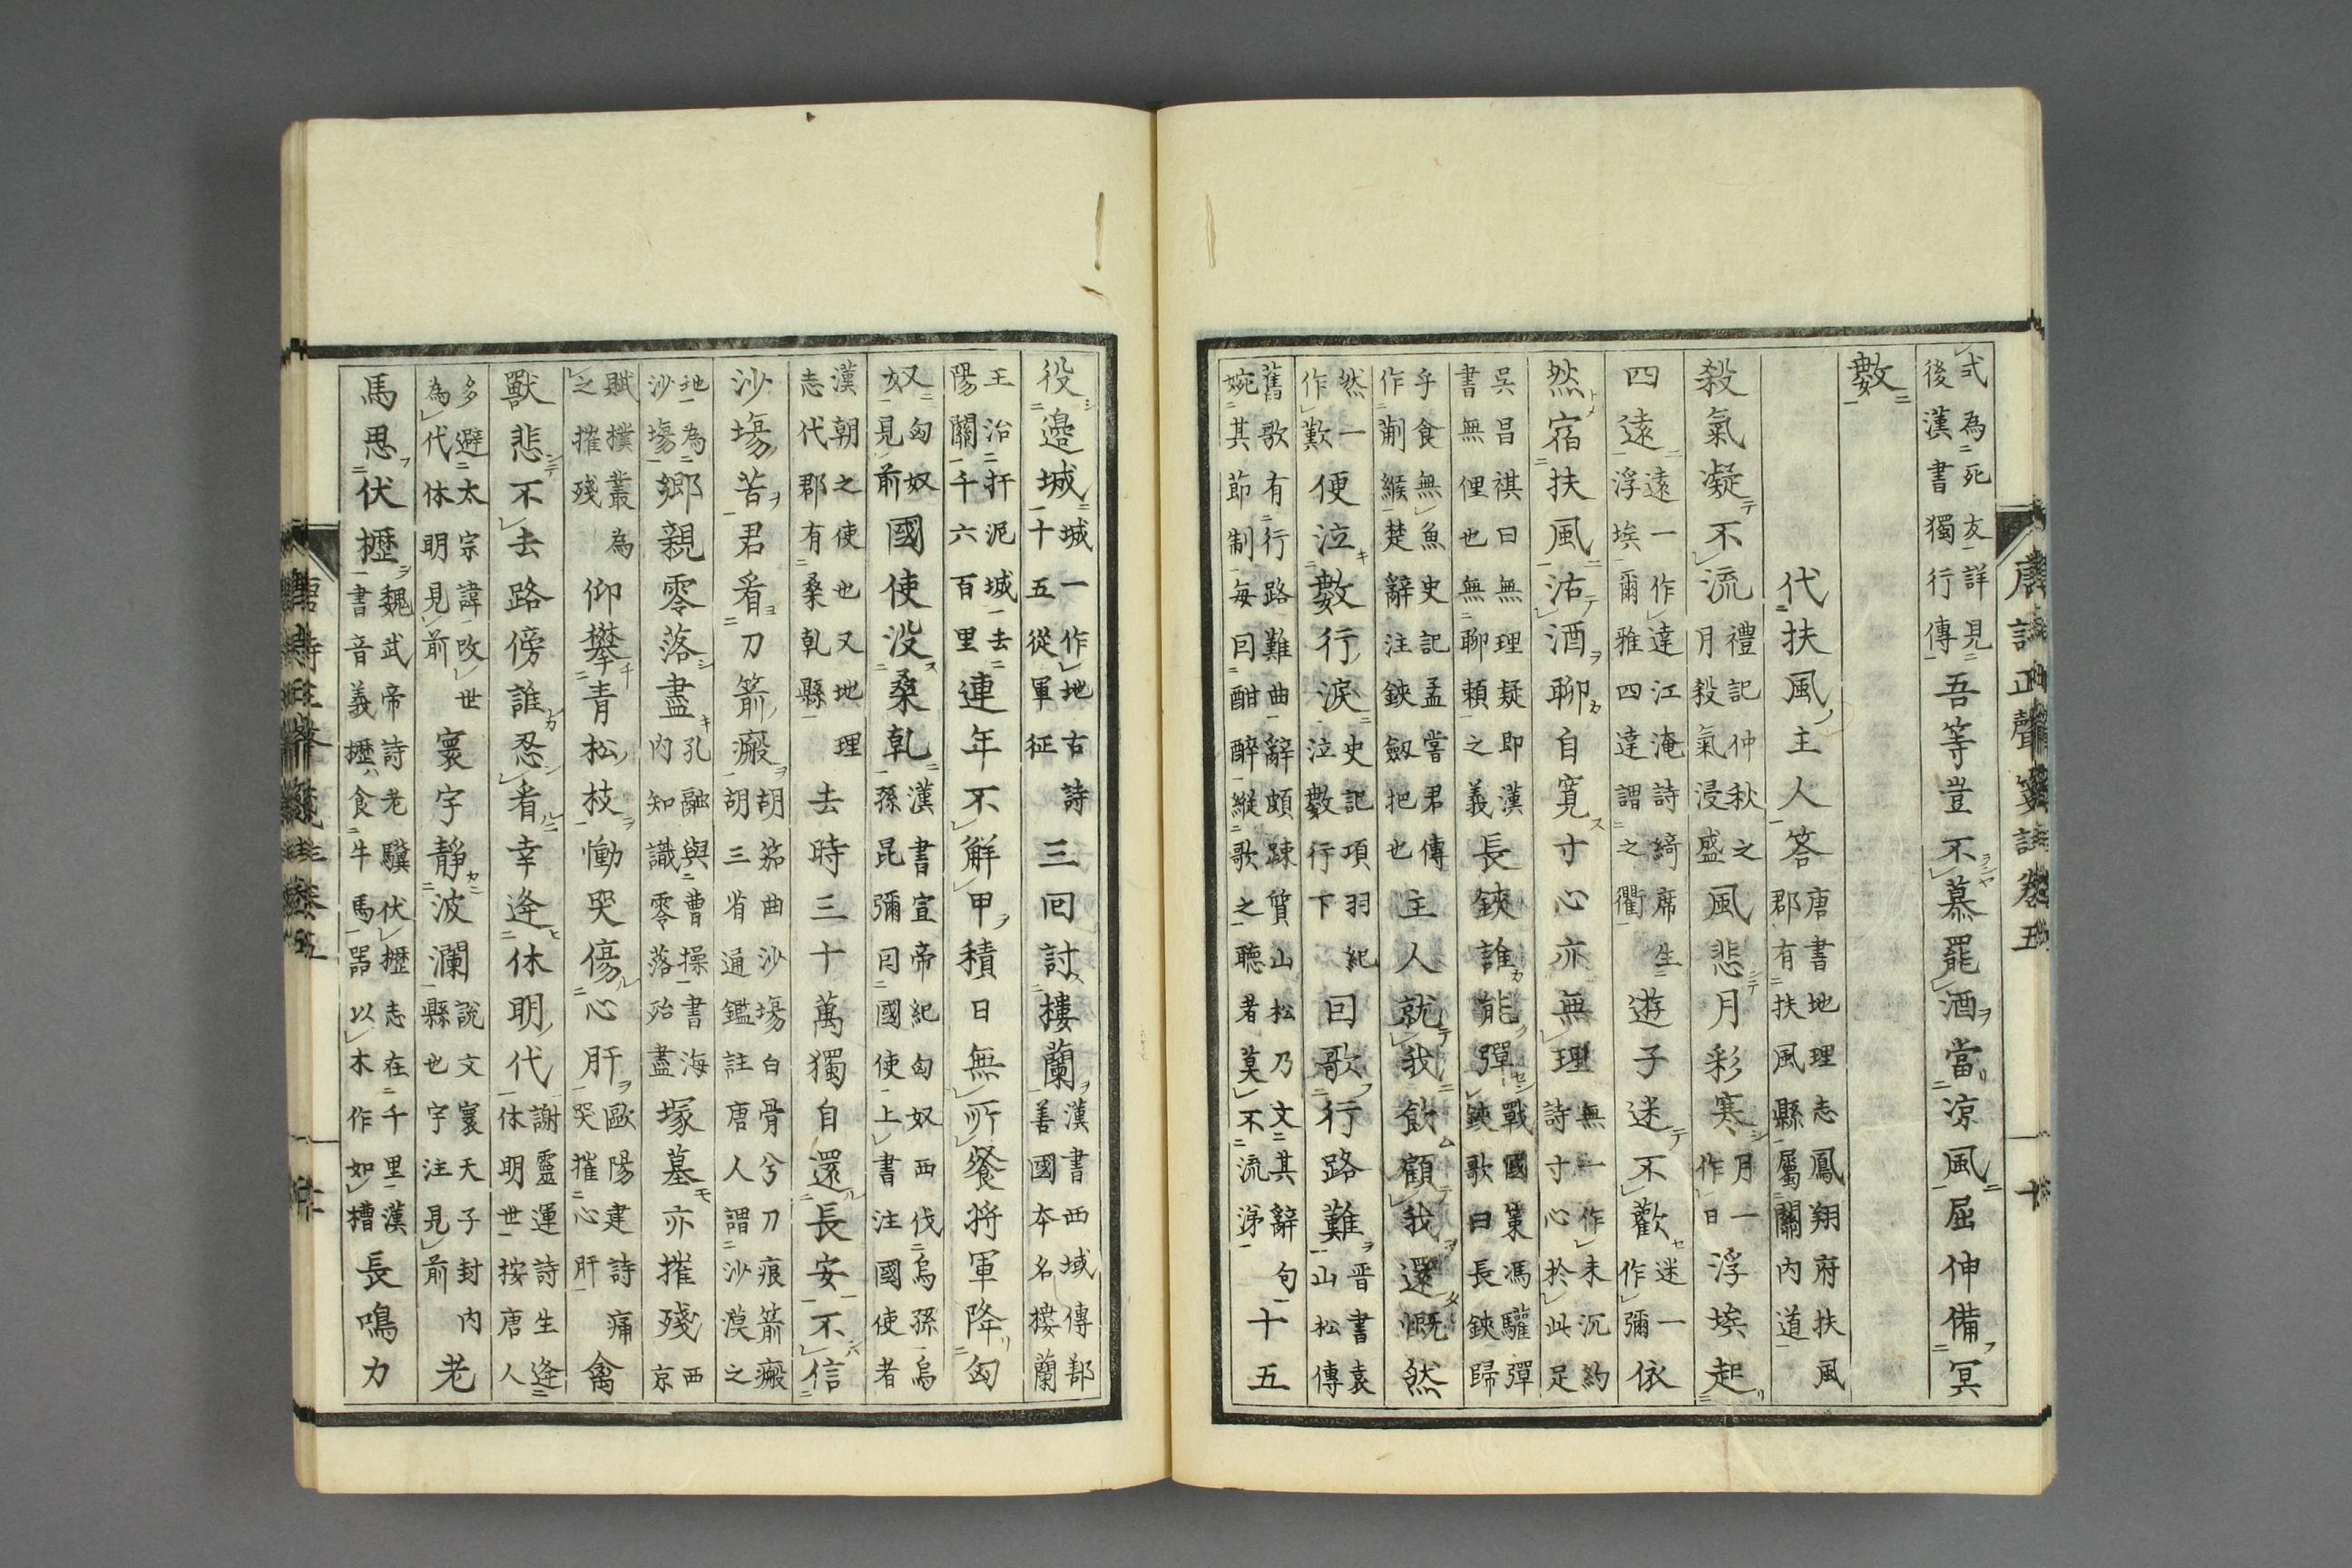 唐詩正聲箋註卷五 十
式為死友詳見後漢書獨行傳吾等豈不慕罷酒當涼風屈伸備冥
數
代扶風主人答唐書地理志鳳翔府扶風郡有扶風縣屬關内道
殺氣凝不流禮記仲秋之月殺氣浸盛風悲月彩寒月一作日浮埃起
四遠遠一作達江淹詩綺席生浮埃爾雅四達謂之衢遊子迷不歡迷一作彌依
然宿扶風沽酒聊自寛寸心亦無理無一作未沉約詩寸心於此足
吳昌祺曰無理疑即漢書無俚也無聊頼之義長鋏誰能彈戰國策馮驩彈鋏歌曰長鋏歸
乎食無魚史記孟嘗君傳作蒯緱楚辭注鋏劔把也主人就我飲顧我還慨然
然一作歎便泣數行淚史記項羽紀泣數行下回歌行路難晋書袁山松傳
舊歌有行路難曲辭頗踈質山松乃文其辭句婉其節制每因酣醉縱歌之聽者莫不流涕十五
役邊城城一作地古詩十五從軍征三回討樓蘭漢書西域傳鄯善國本名樓蘭
王治扜泥城去陽關千六百里連年不解甲積日無所餐將軍降匈
奴又匈奴見前國使没桑乾漢書宣帝紀匈奴西伐烏孫烏孫昆彌曰國使上書注國使者
漢朝之使也又地理志代郡有桑乾縣去時三十萬獨自還長安不信
沙塲苦君看刀箭瘢胡笳曲沙塲白骨兮刀痕箭瘢胡三省通鑑註唐人謂沙漠之
地為沙塲鄉親零落盡孔融與曹操書海内知識零落殆盡塚墓亦摧殘西京
賦撲叢為之摧殘仰攀青松枝慟哭傷心肝歐陽建詩痛哭摧心肝禽
獸悲不去路傍誰忍看幸逢休明代謝靈運詩生逢休明世按唐人
多避太宗諱改世為代休明見前寰宇靜波瀾説文寰天子封内縣也宇注見前老
馬思伏櫪魏武帝詩老驥伏櫪志在千里漢書音義櫪食牛馬器以木作如槽長鳴力